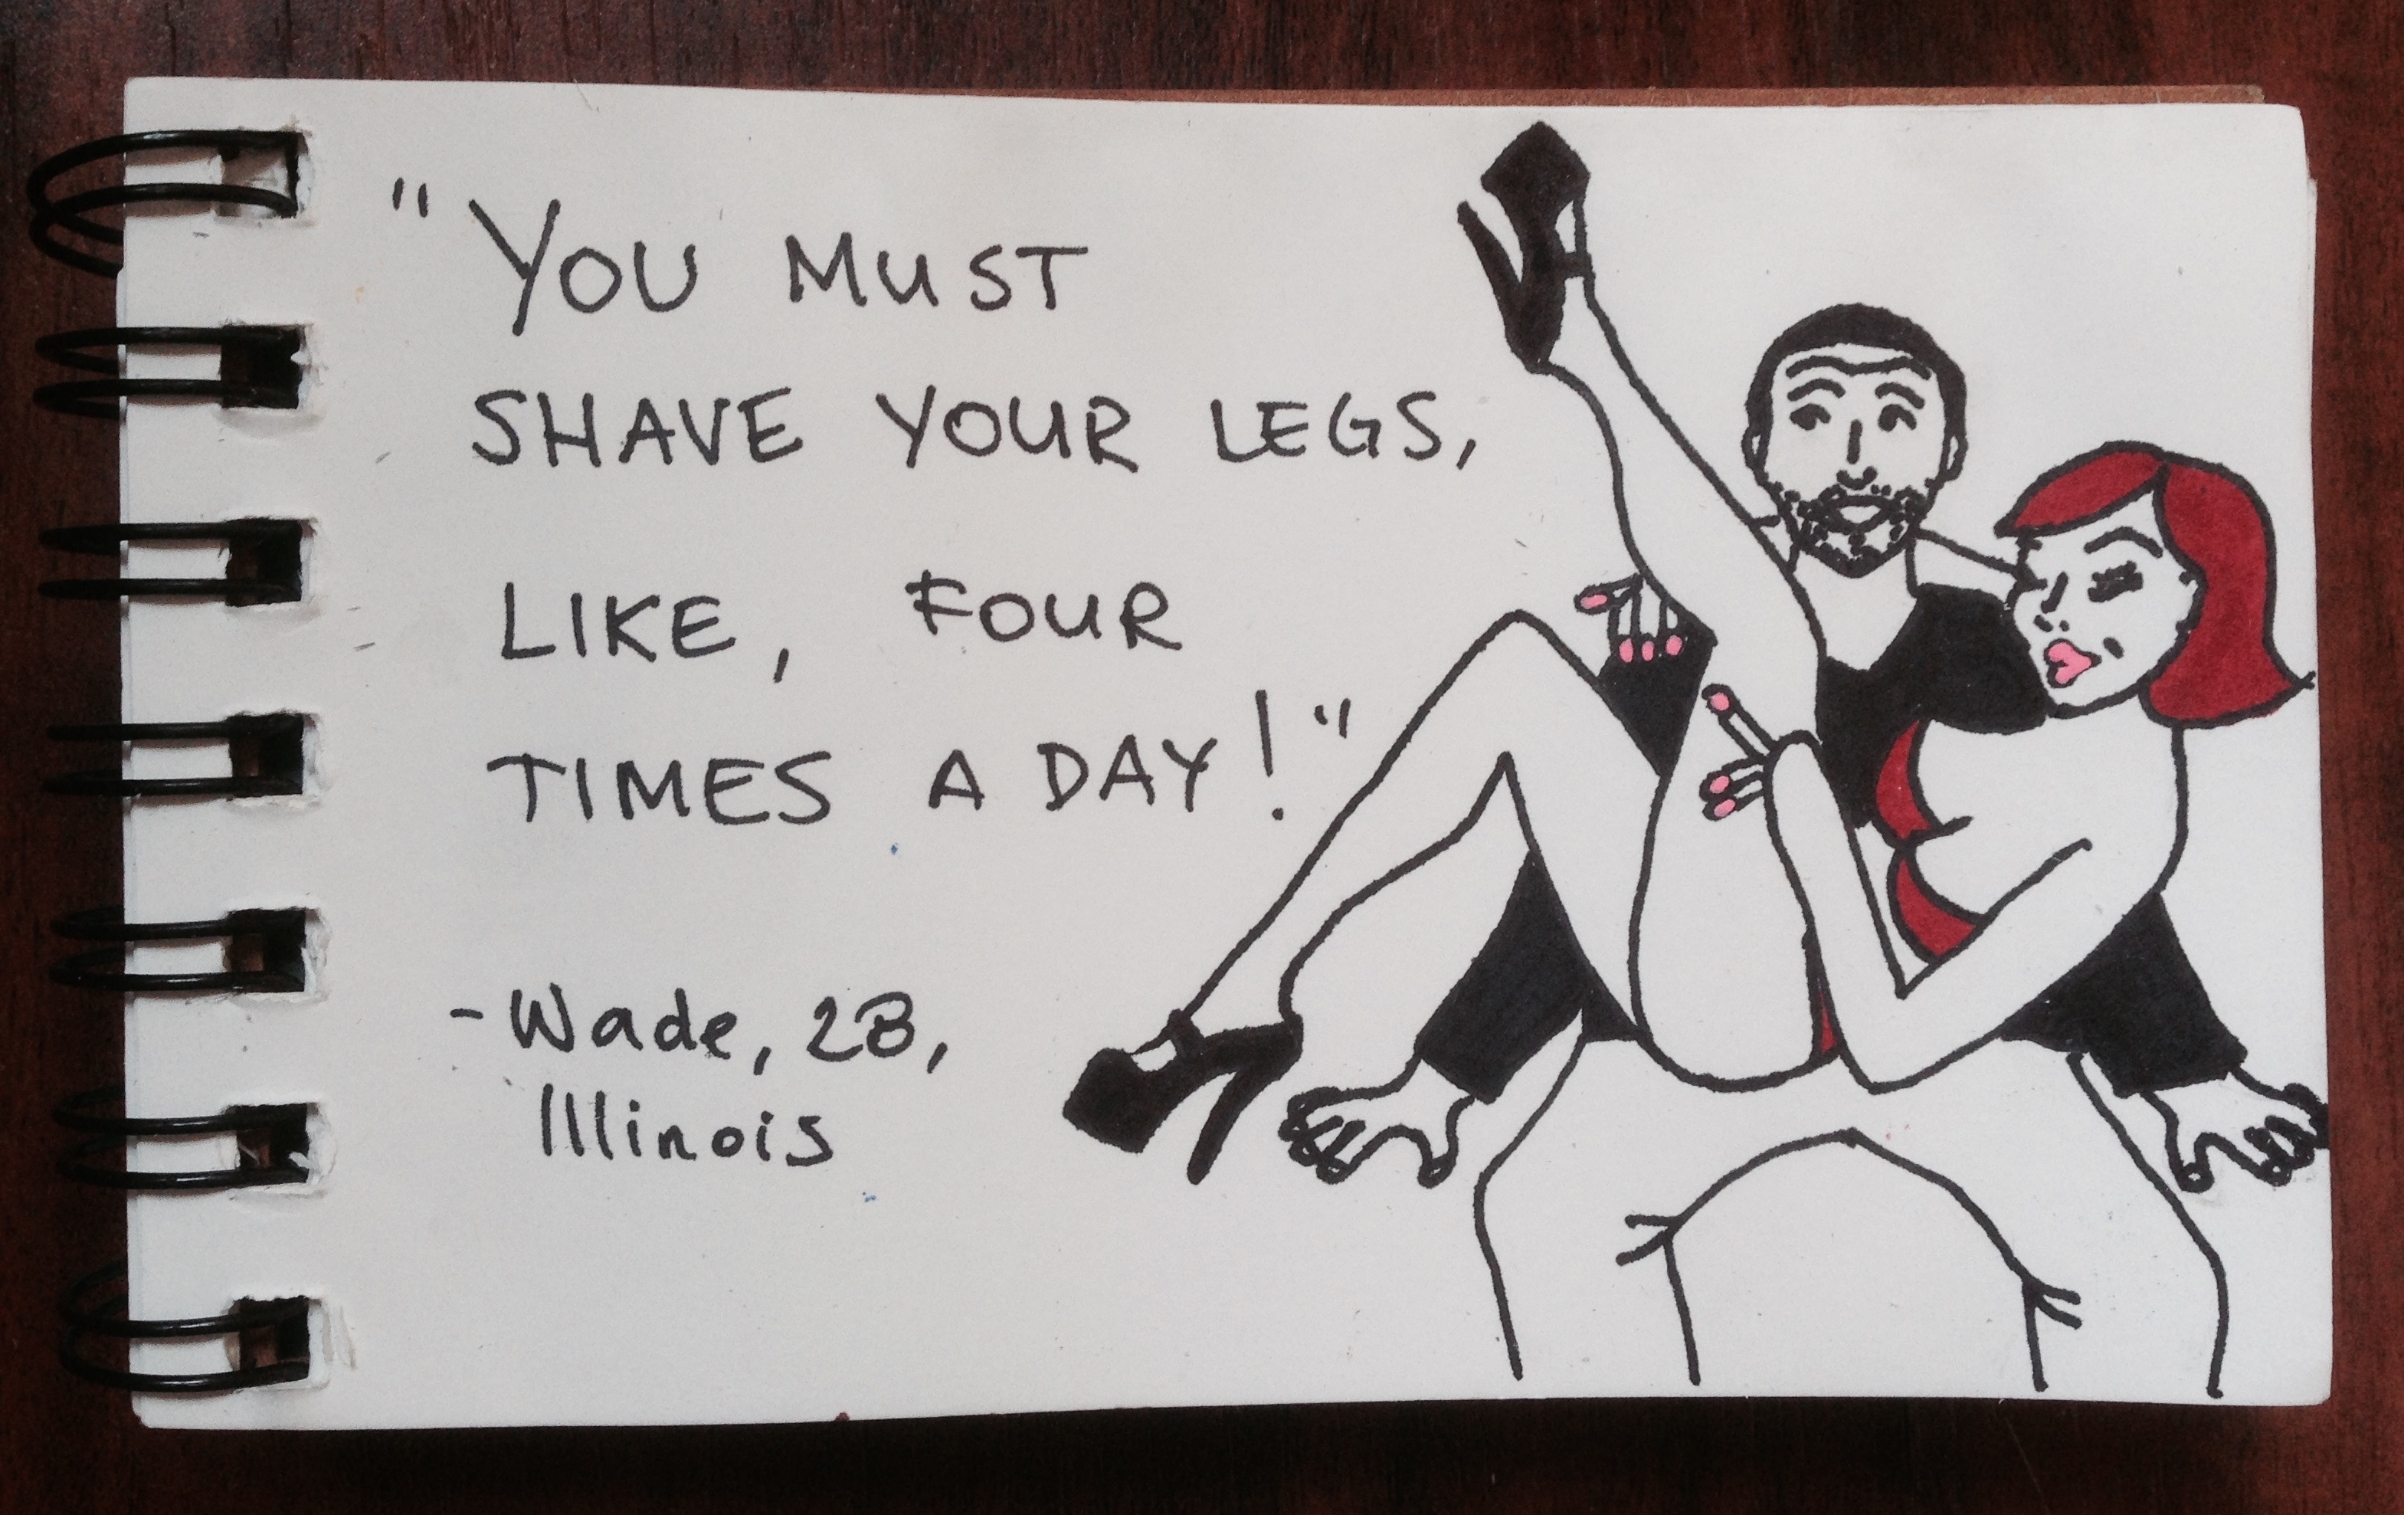 "YOU MUST
SHAVE YOUR LEGS,
LIKE, FOUR
TIMES A DAY!"
-Wade, 28,
Illinois